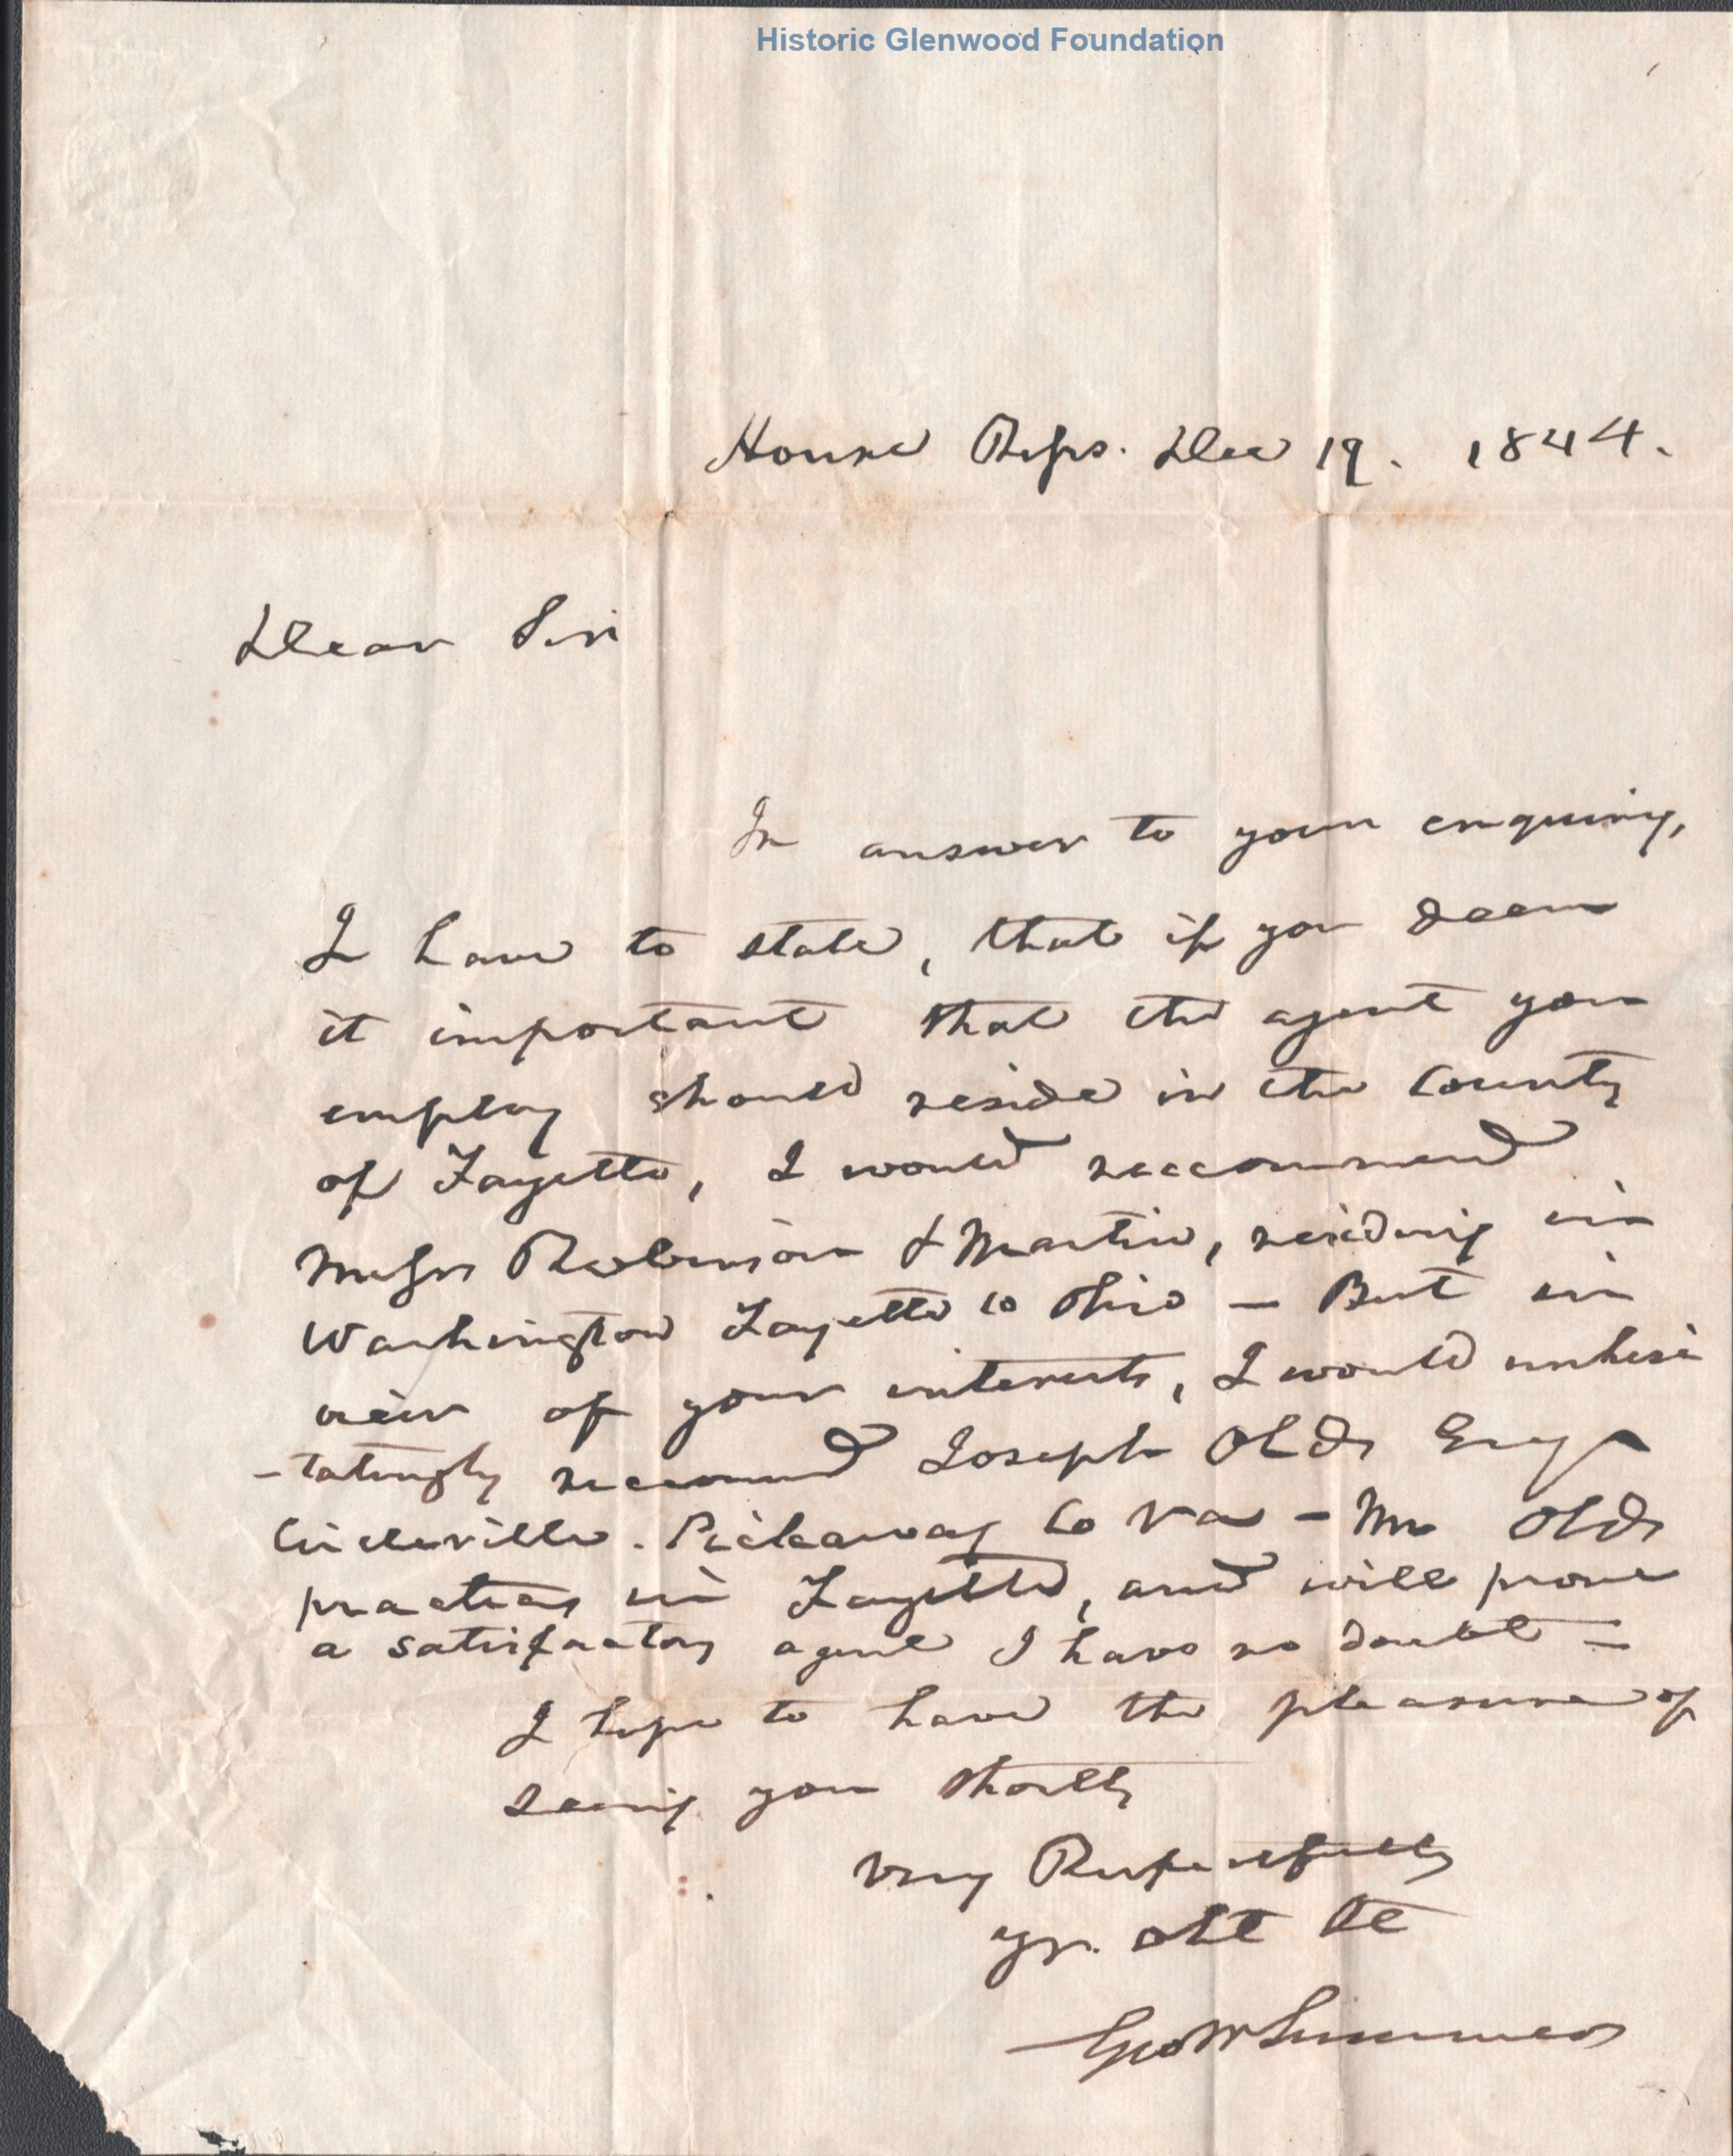 Historic Glenwood Foundation
House Reps. Dec 19. 1844.
Dear Sir
In answer to your enquiry,
I have to state, that if you deem
it important that the agent you
employ should reside in the County
of Fayette, I would reccommend
Messrs Robinson & Martin, residing in
Washington Fayette Co Ohio — But in
view of your interests, I would unhesi
-tatingly recommend Joseph Olds Esqr
Circleville. Pickaway Co Va — Mr Olds
practices in Fayette, and will prove
a satisfactory agent I have no doubt —
I hope to have the pleasure of
seeing you shortly
Very Respectfully
yr. obt
Geo W Summers